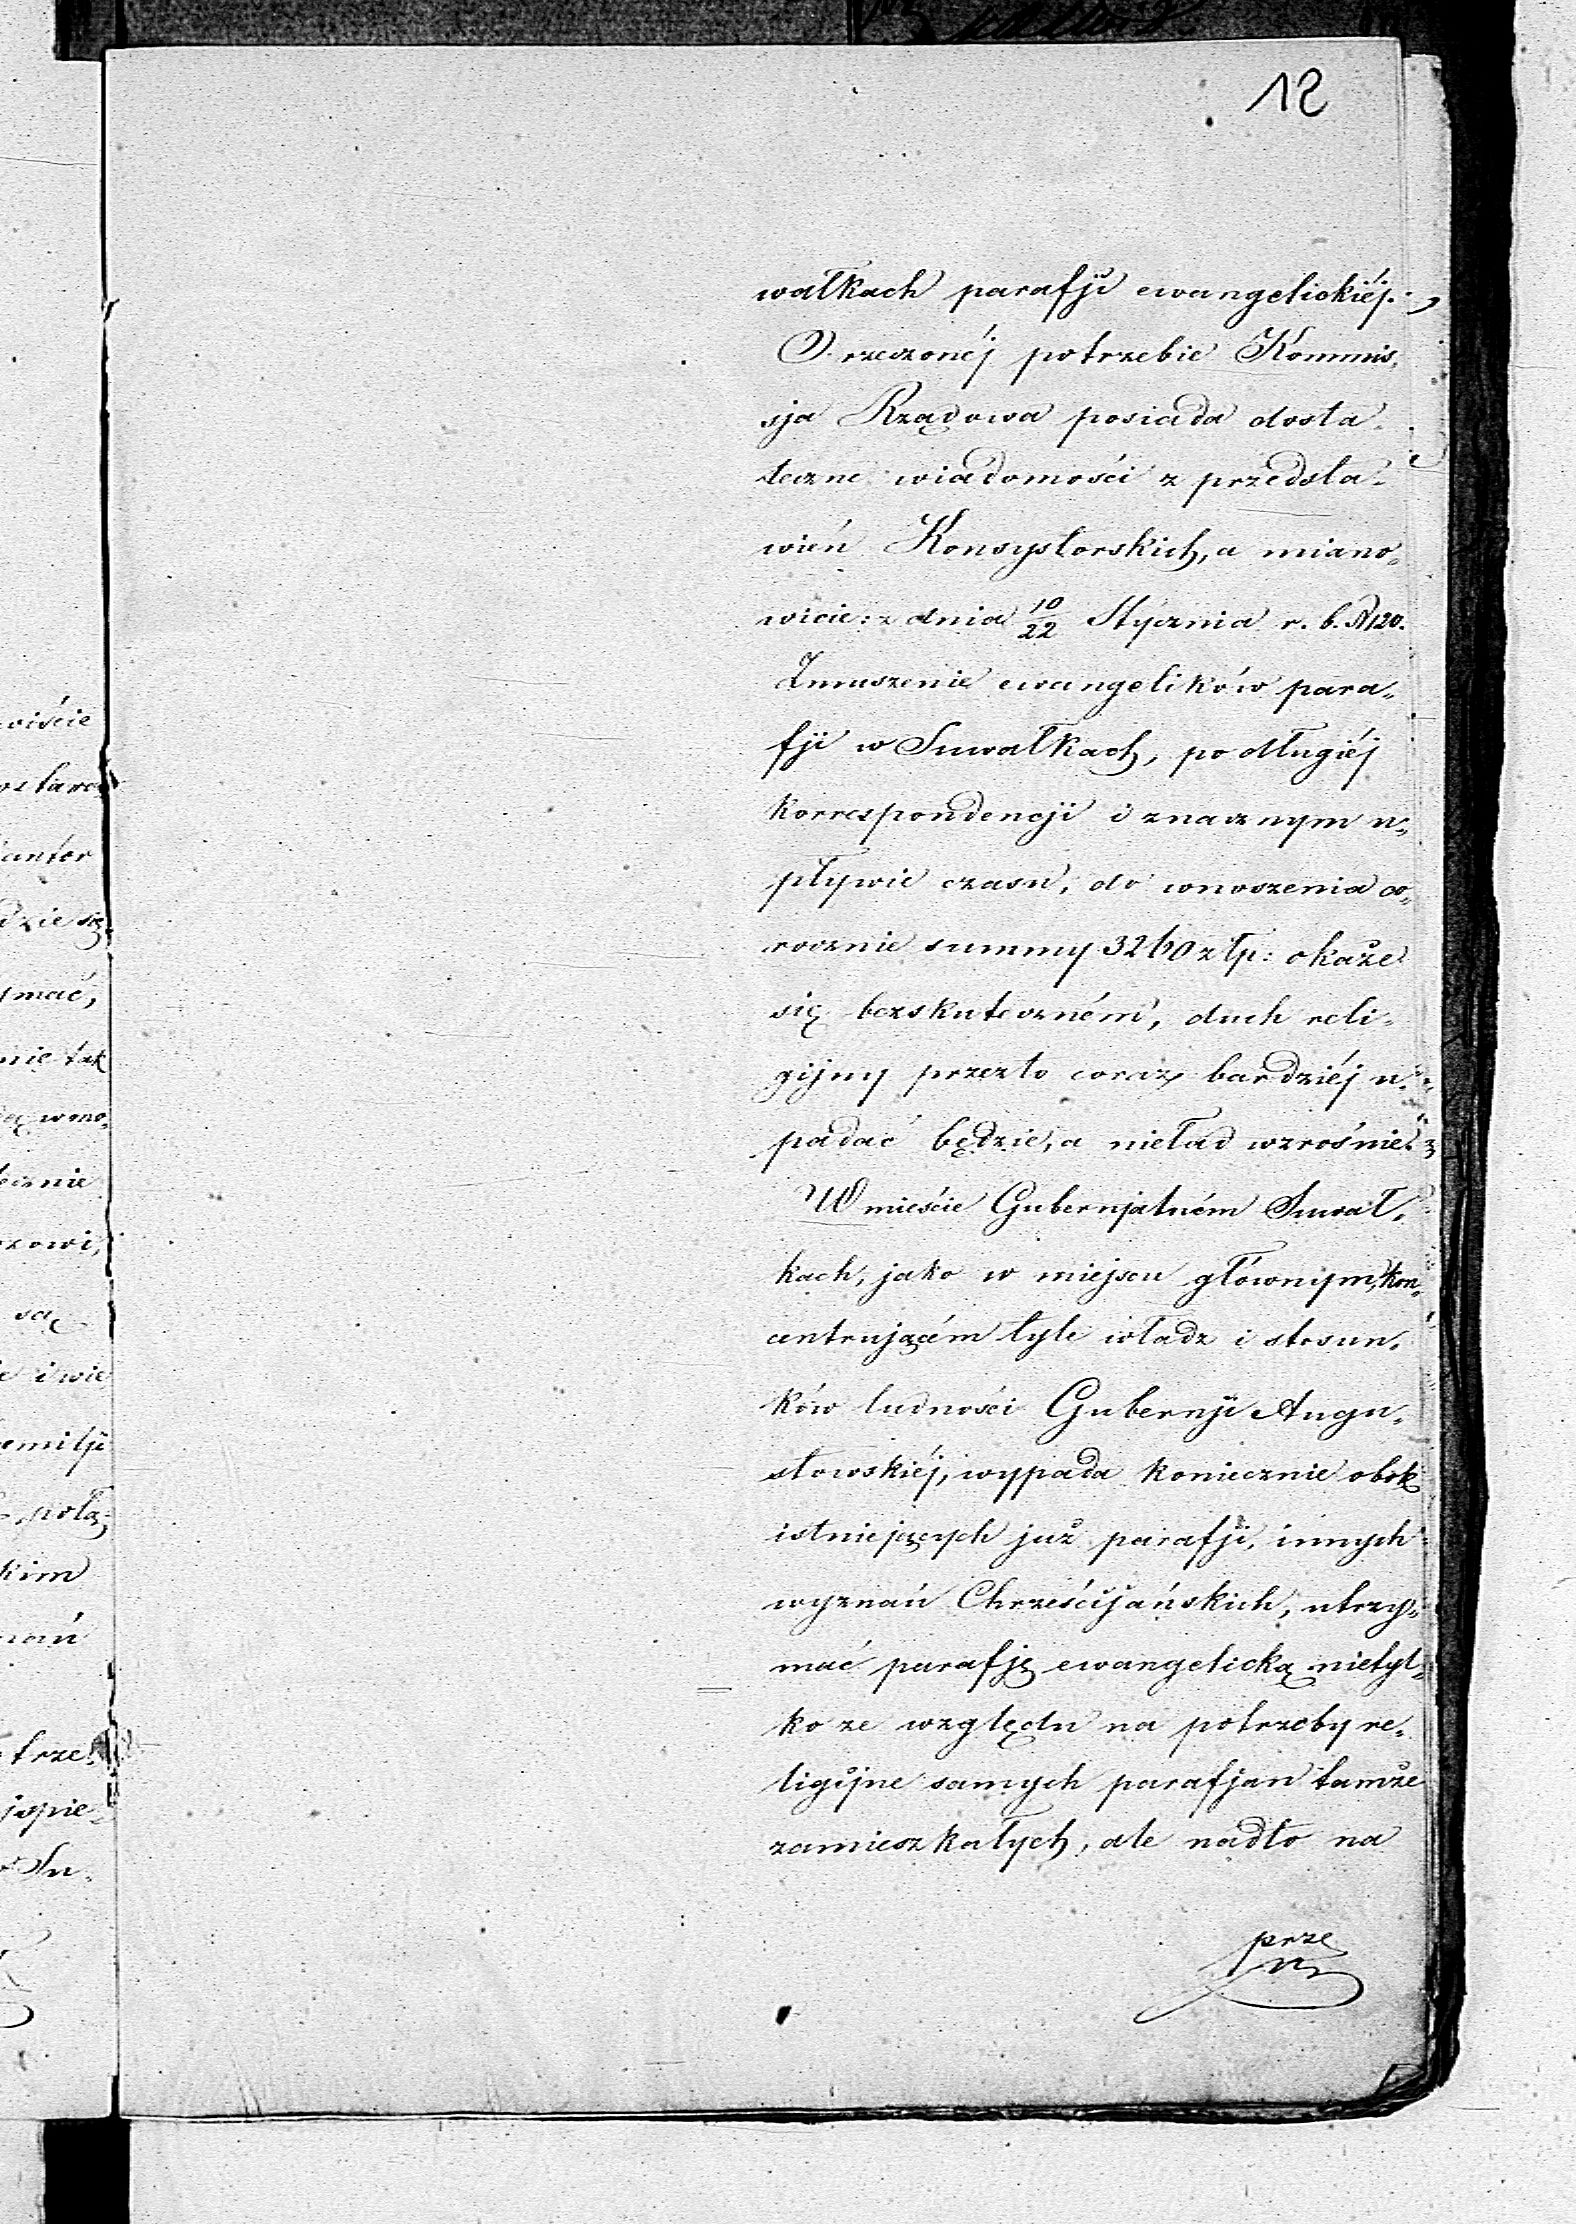 12
wałkach parafji ewangelickiéj.
O rzeczonéj potrzebie Kommis„
sja Rządowa posiada dosta„
teczne wiadomości z przedsta„
wień Konsystorskich, a miano„
wicie: z dnia 10/22 Stycznia r. b. N 120.
Zmuszenie ewangelików para„
fji w Suwałkach, po długiéj
korrespondencji i znacznym u„
pływie czasu, do wnoszenia co„
rocznie summy 3260 złp: okaże
się bezskuteczném, duch reli„
gijny przezto coraz bardziéj u„
padać będzie, a nieład wzrośnie.
W mieście Gubernjalném Suwał„
kach, jako w miejscu głównym, kon„
centrującém tyle władz i stosun„
ków ludności Gubernji Augu„
stowskiéj, wypada koniecznie obok
istniejących już parafji, innych
wyznań Chrześcijańskich, utrzy„
mać parafję ewangelicką nietyl„
ko ze względu na potrzeby re„
ligijne samych parafjan tamże
zamieszkałych, ale nadto na
prze
wiście
antor
dzie się
ymać,
nie tak
są
i wie
emilji
kim
trze
Su„